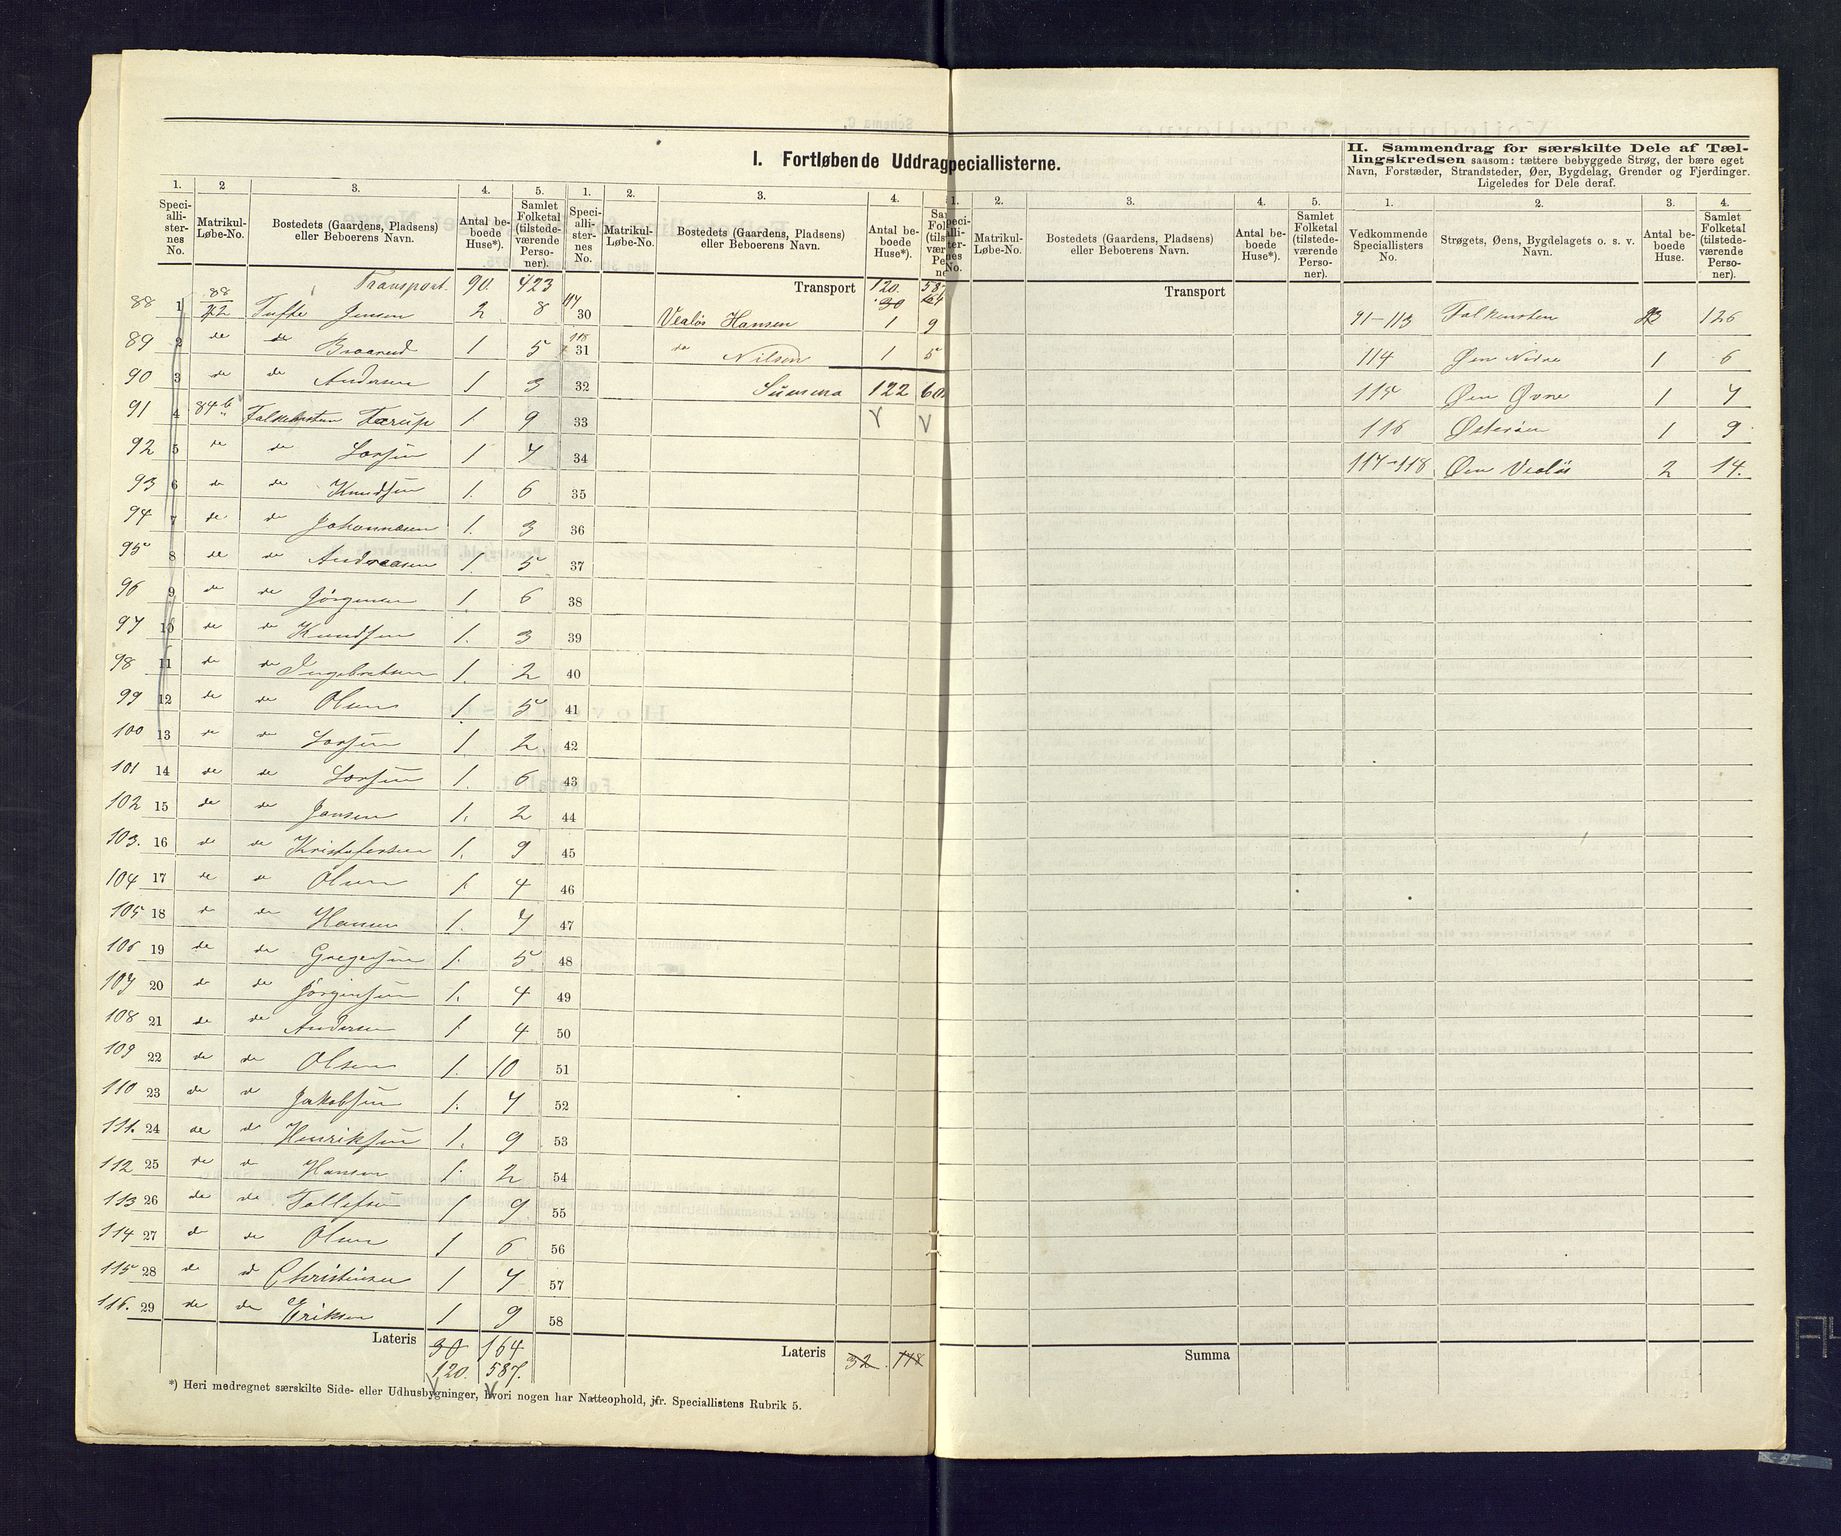 I. Fortløbende Uddrag peciallisterne.
II. Sammendrag for særskilte Dele af Tæl-
lingskredsen saasom: tættere bebyggede Strøg, der bære eget
Navn, Forstæder, Strandsteder, Øer, Bygdelag, Grender og Fjerdinger.
Ligeledes for Dele deraf.
1. 2 3. 4. 5. 1. 2. 3. 4. 1. 2. 3. 4. 5. 1. 2. 3. 4.
Speciallisternes No. Matrikul-Løbe-No. Bostedets (Gaardens, Pladsens) eller Beboerens Navn. Antal beboede Huse*). Samlet Folketal (tilstedeværende Personer).
Speciallisternes No. Matrikul-Løbe-No. Bostedets (Gaardens, Pladsens) eller Beboerens Navn. Antal beboede Huse*).
Matrikul-Løbe-No. Bostedets (Gaardens, Pladsens) eller Beboerens Navn. Antal beboede Huse*). Samlet Folketal (tilstedeværende Personer).
Vedkommende Speciallisters No. Strøgets, Øens, Bygdelagets o. s. v. Navn. Antal beboede Huse. Samlet Folketal (tilstedeværende Personer).
Transport 90. 423
88 1 88 Tufte Jensen 2 8
89 2 do do Braarud 1 5
90 3 do do Andersen 1 3
91 4 84 b Falkensten Tærup 1 9
92 5 do do Larsen 1 7
93 6 do do Knudsen 1. 6
94 7 do do Johannesen 1. 3
95 8 do do Andreasen 1. 5
96 9 do do Jørgensen 1. 6
97 10 do do Knudsen 1. 3
98 11 do do Ingebretsen 1. 2
99 12 do do Olsen 1. 5
100 13 do do Larsen 1 2
101 14 do do Larsen 1. 6
102 15 do do Jansen 1. 2
103. 16 do do Kristofersen 1. 9
104 17 do do Olsen 1. 4
105 18 do do Hansen 1. 7
106 19 do do Gregersen 1. 5
107 20 do do Jørgensen 1. 4
108 21 do do Andersen 1. 4
109 22 do do Olsen 1. 10
110 23 do do Jakobsen 1. 7
111. 24 do do Henriksen 1. 9
112 25 do do Hansen 1. 2
113 26 do do Tollefsen 1 9
114 27 do do Olsen 1 6
115 28 do do Christensen 1 7
116. 29 do do Eriksen 1 9
Lateris 30 164
120. 587.
*) Heri medregnet særskilte Side- eller Udhusbygninger, hvori nogen har Natteophold, jfr. Speciallistens Rubrik 5.
Transport 120. 587
30 164
117 30 Vealøs Hansen 1 9
118 31 do Nilsen 1 5
32 Summa 122 60
33
34
35
36
37
38
39
40
41
42
43
44
45
46
47
48
49
50
51
52
53
54
55
56
57
58
Lateris 32. 178
Transport
Summa
91-113 Falkensten 126
114 Øen Nedre 1 6
115 Øen Øvre 1 7
116 Østerøen 1 9
117-118 Øen Vealøs 2 14.